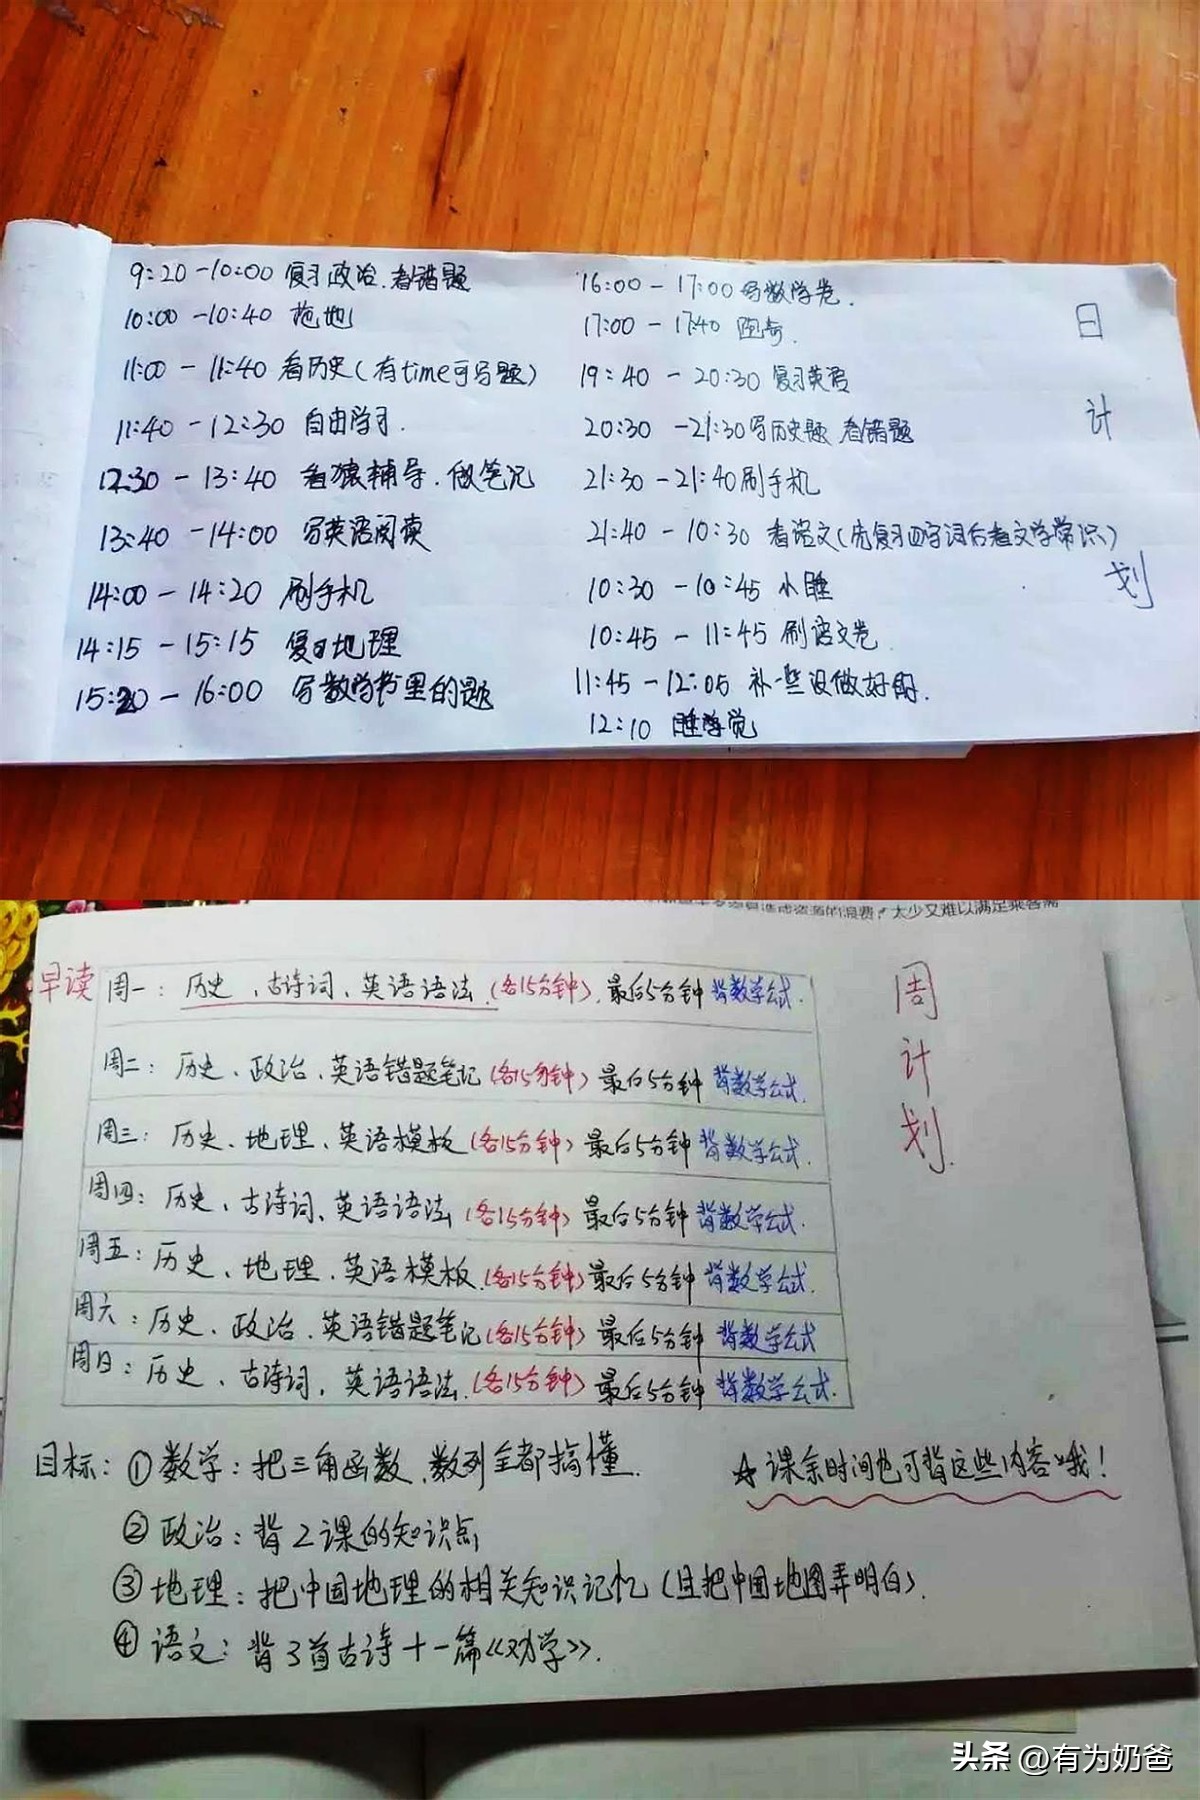 9:20-10:00 复习政治.看错题
10:00-10:40 拖地
11:00-11:40 看历史(有time可写题)
11:40-12:30 自由学习.
12:30-13:40 看猿辅导.做笔记
13:40-14:00 写英语阅读
14:00-14:20 刷手机
14:15-15:15 复习地理
15:20-16:00 写数学书里的题
16:00-17:00 写数学卷.
17:00-17:40
19:40-20:30 复习英语
20:30-21:30 写历史题 看错题
21:30-21:40 刷手机
21:40-10:30 看语文(先复习四字词后看文学常识)
10:30-10:45 小睡
10:45-11:45 刷语文卷.
11:45-12:05 补一些没做好的.
12:10 睡觉
日计划
早读
周一:历史、古诗词、英语语法.(各15分钟).最后5分钟 背数学公式.
周二:历史、政治、英语错题笔记(各15分钟)最后5分钟 背数学公式.
周三:历史、地理、英语模板(各15分钟)最后5分钟 背数学公式.
周四:历史、古诗词、英语语法(各15分钟)最后5分钟 背数学公式.
周五:历史、地理.英语模板.(各15分钟)最后5分钟 背数学公式.
周六:历史、政治.英语错题笔记(各15分钟)最后5分钟 背数学公式
周日:历史、古诗词,英语语法.(各15分钟)最后5分钟 背数学公式.
周计划.
目标:①数学:把三角函数、数列全都搞懂.
☆课余时间也可背这些内容哦!
②政治:背2课的知识点
③地理:把中国地理的相关知识记忆(且把中国地图弄明白).
④语文:背3首古诗十一篇《劝学》.
头条 @有为奶爸